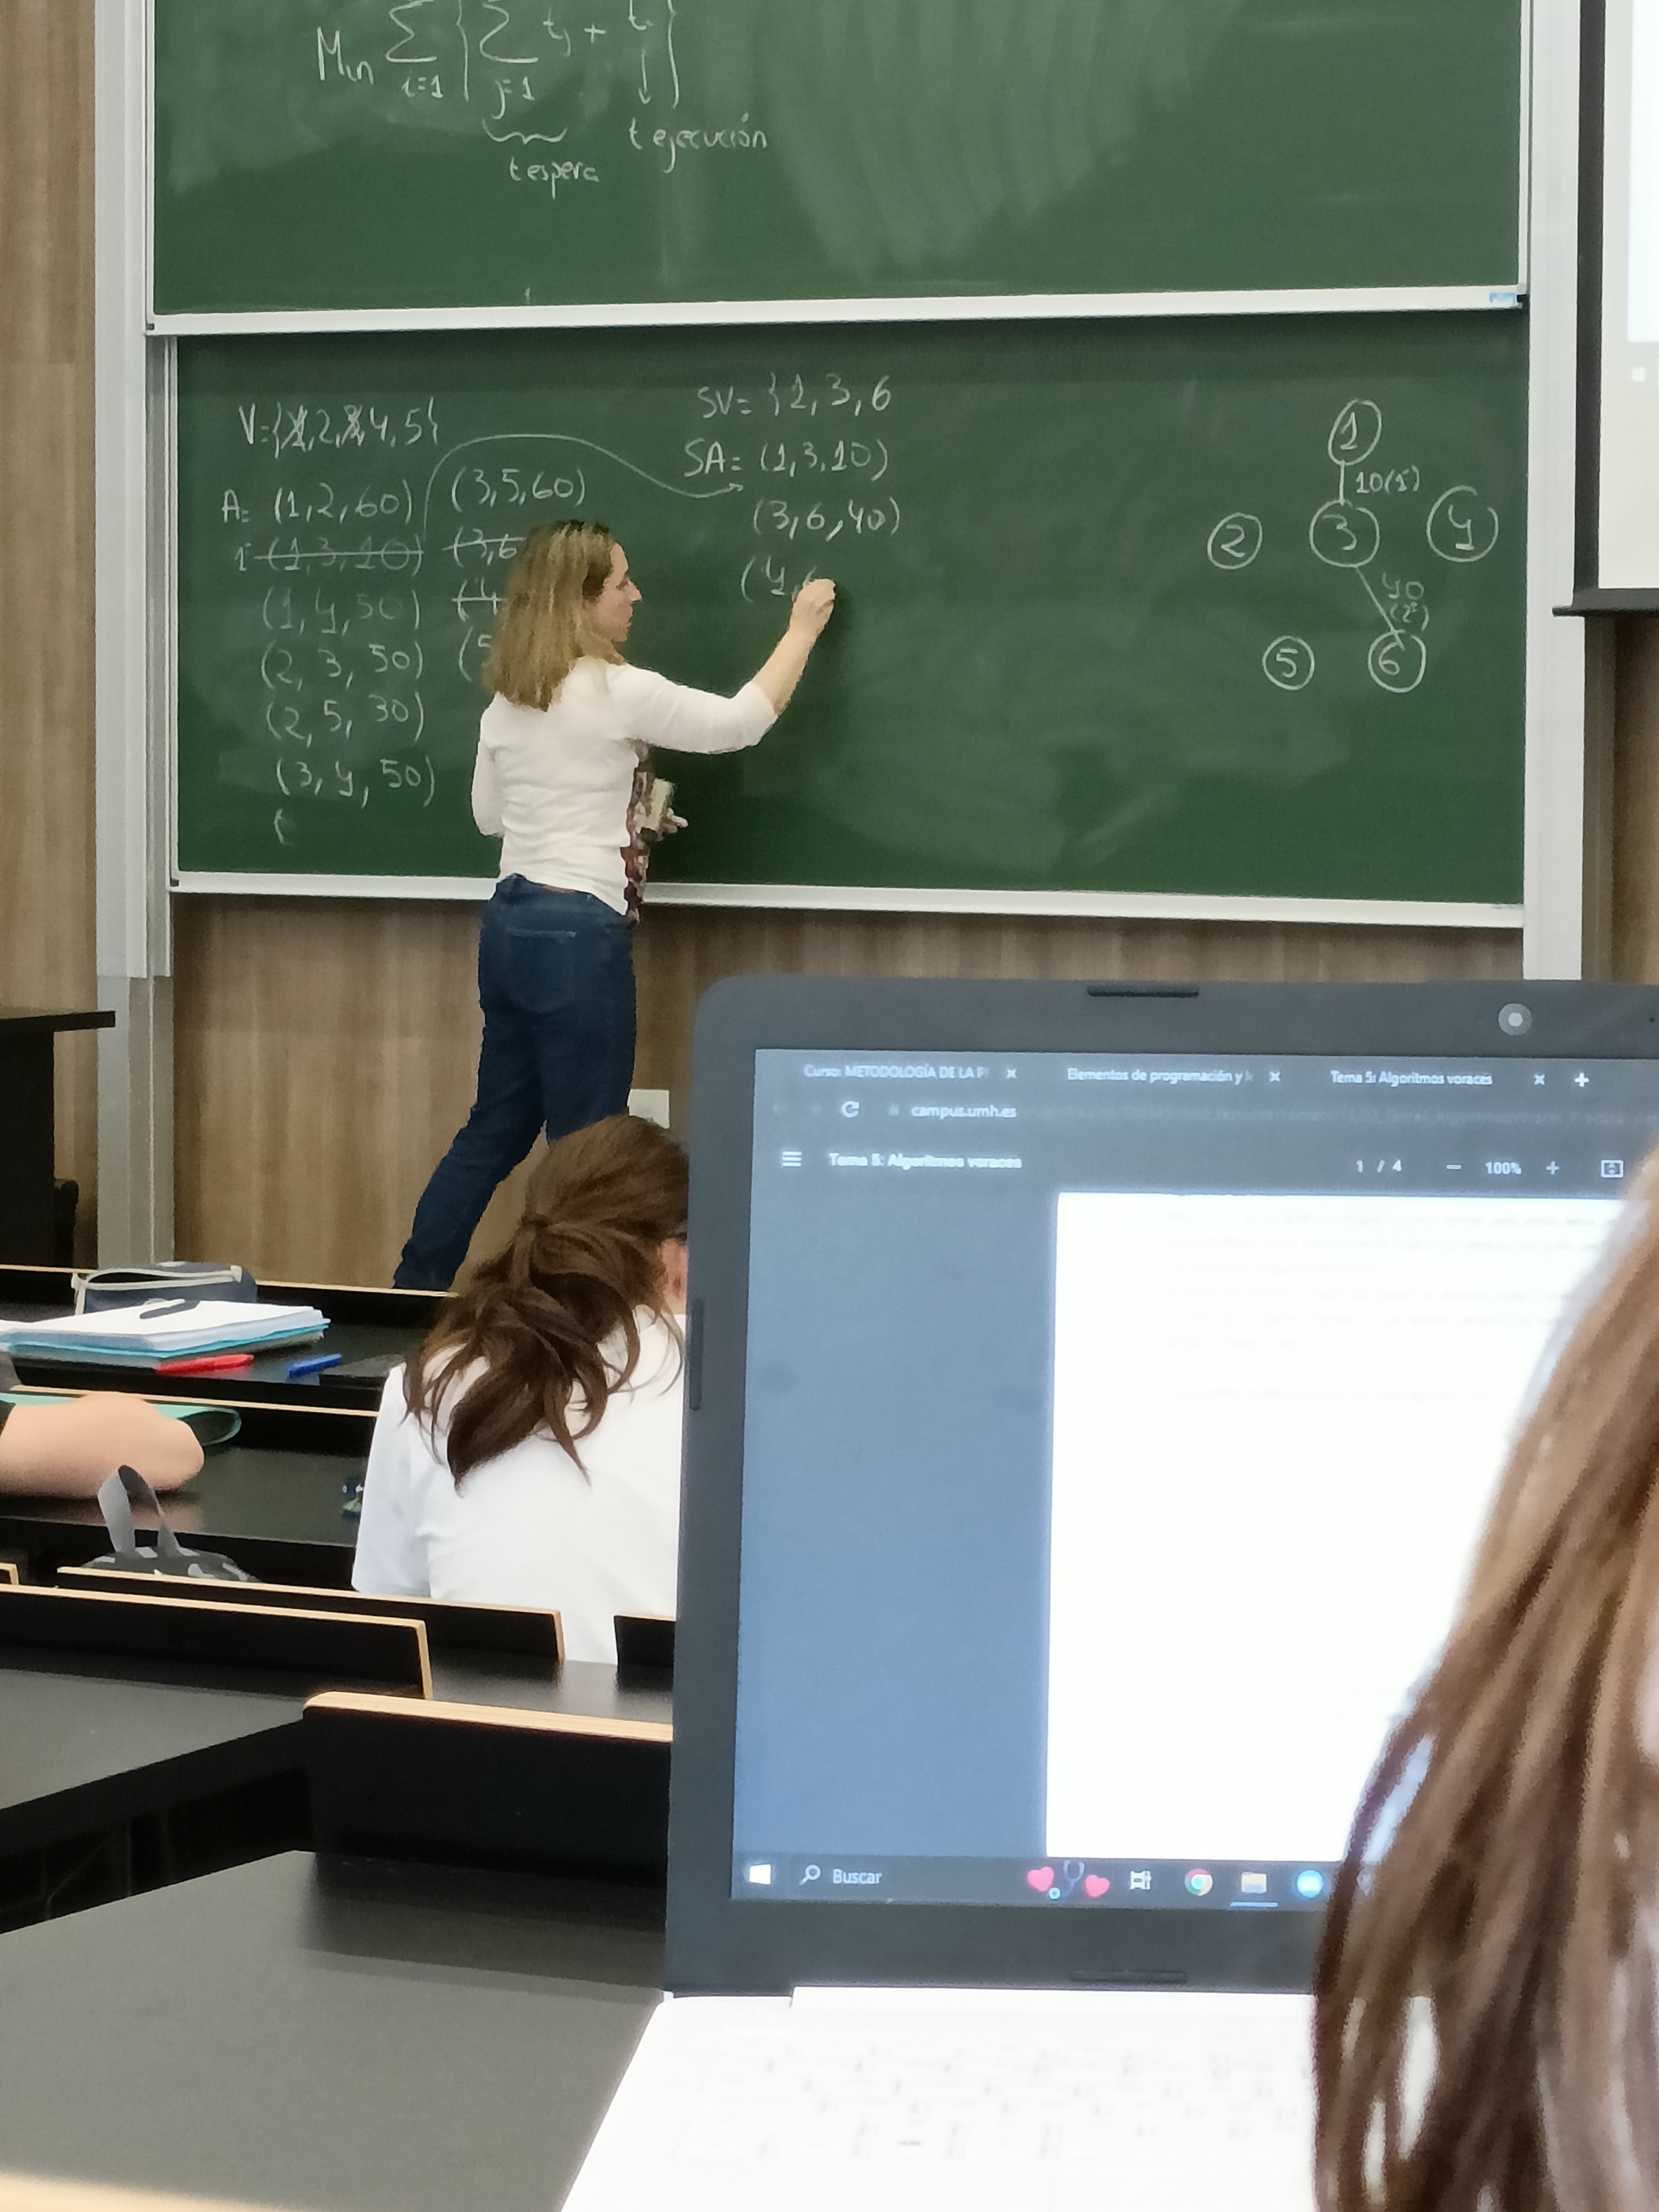 Min Σ { Σ tj +
i=1 j=1
t espera
t ejecución
V={1,2,3,4,5}
A= (1,2,60)
1º (1,3,10)
(1,4,50)
(2,3,50)
(2,5,30)
(3,4,50)
(
(3,5,60)
(3,6
(4
(5
SV= {1,3,6
SA= (1,3,10)
(3,6,40)
(4,
1
10(1º)
2
3
4
40
(2º)
5
6
Curso: METODOLOGÍA DE LA P
Elementos de programación y
Tema 5: Algoritmos voraces
campus.umh.es
Tema 5: Algoritmos voraces
1 / 4
100%
Buscar